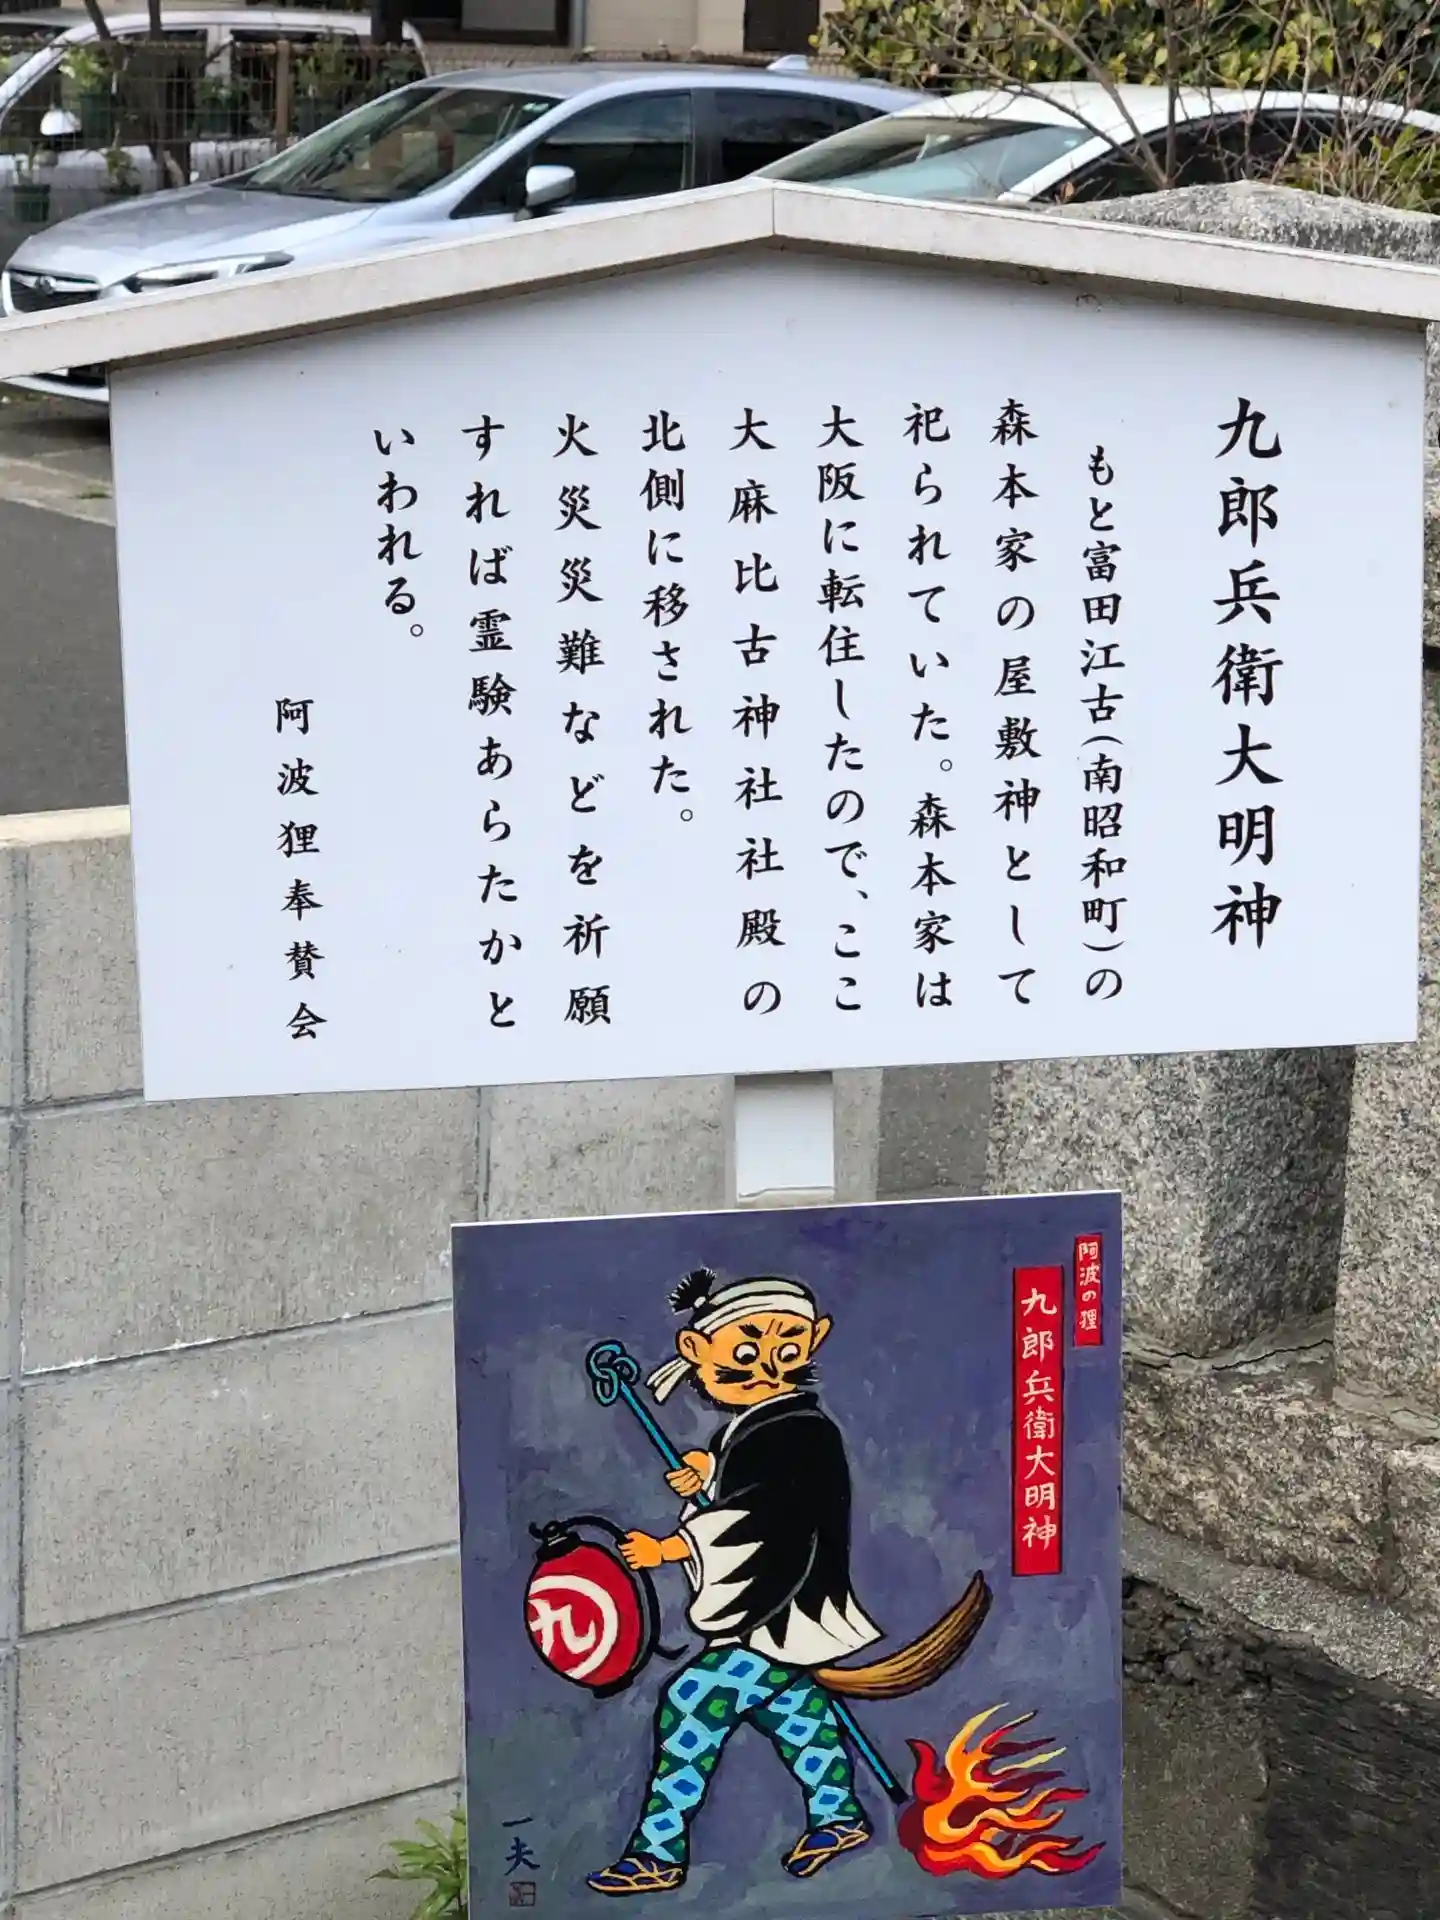 九郎兵衛大明神
もと富田江古(南昭和町)の
森本家の屋敷神として
祀られていた。森本家は
大阪に転住したので、ここ
大麻比古神社社殿の
北側に移された。
火災災難などを祈願
すれば霊験あらたかと
いわれる。
阿波狸奉賛会
阿波の狸
九郎兵衛大明神
九
一夫